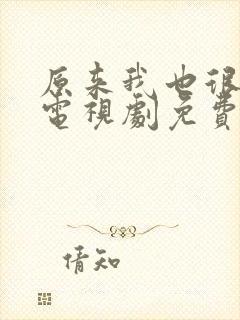 原来我也很
電視劇免費
倩知